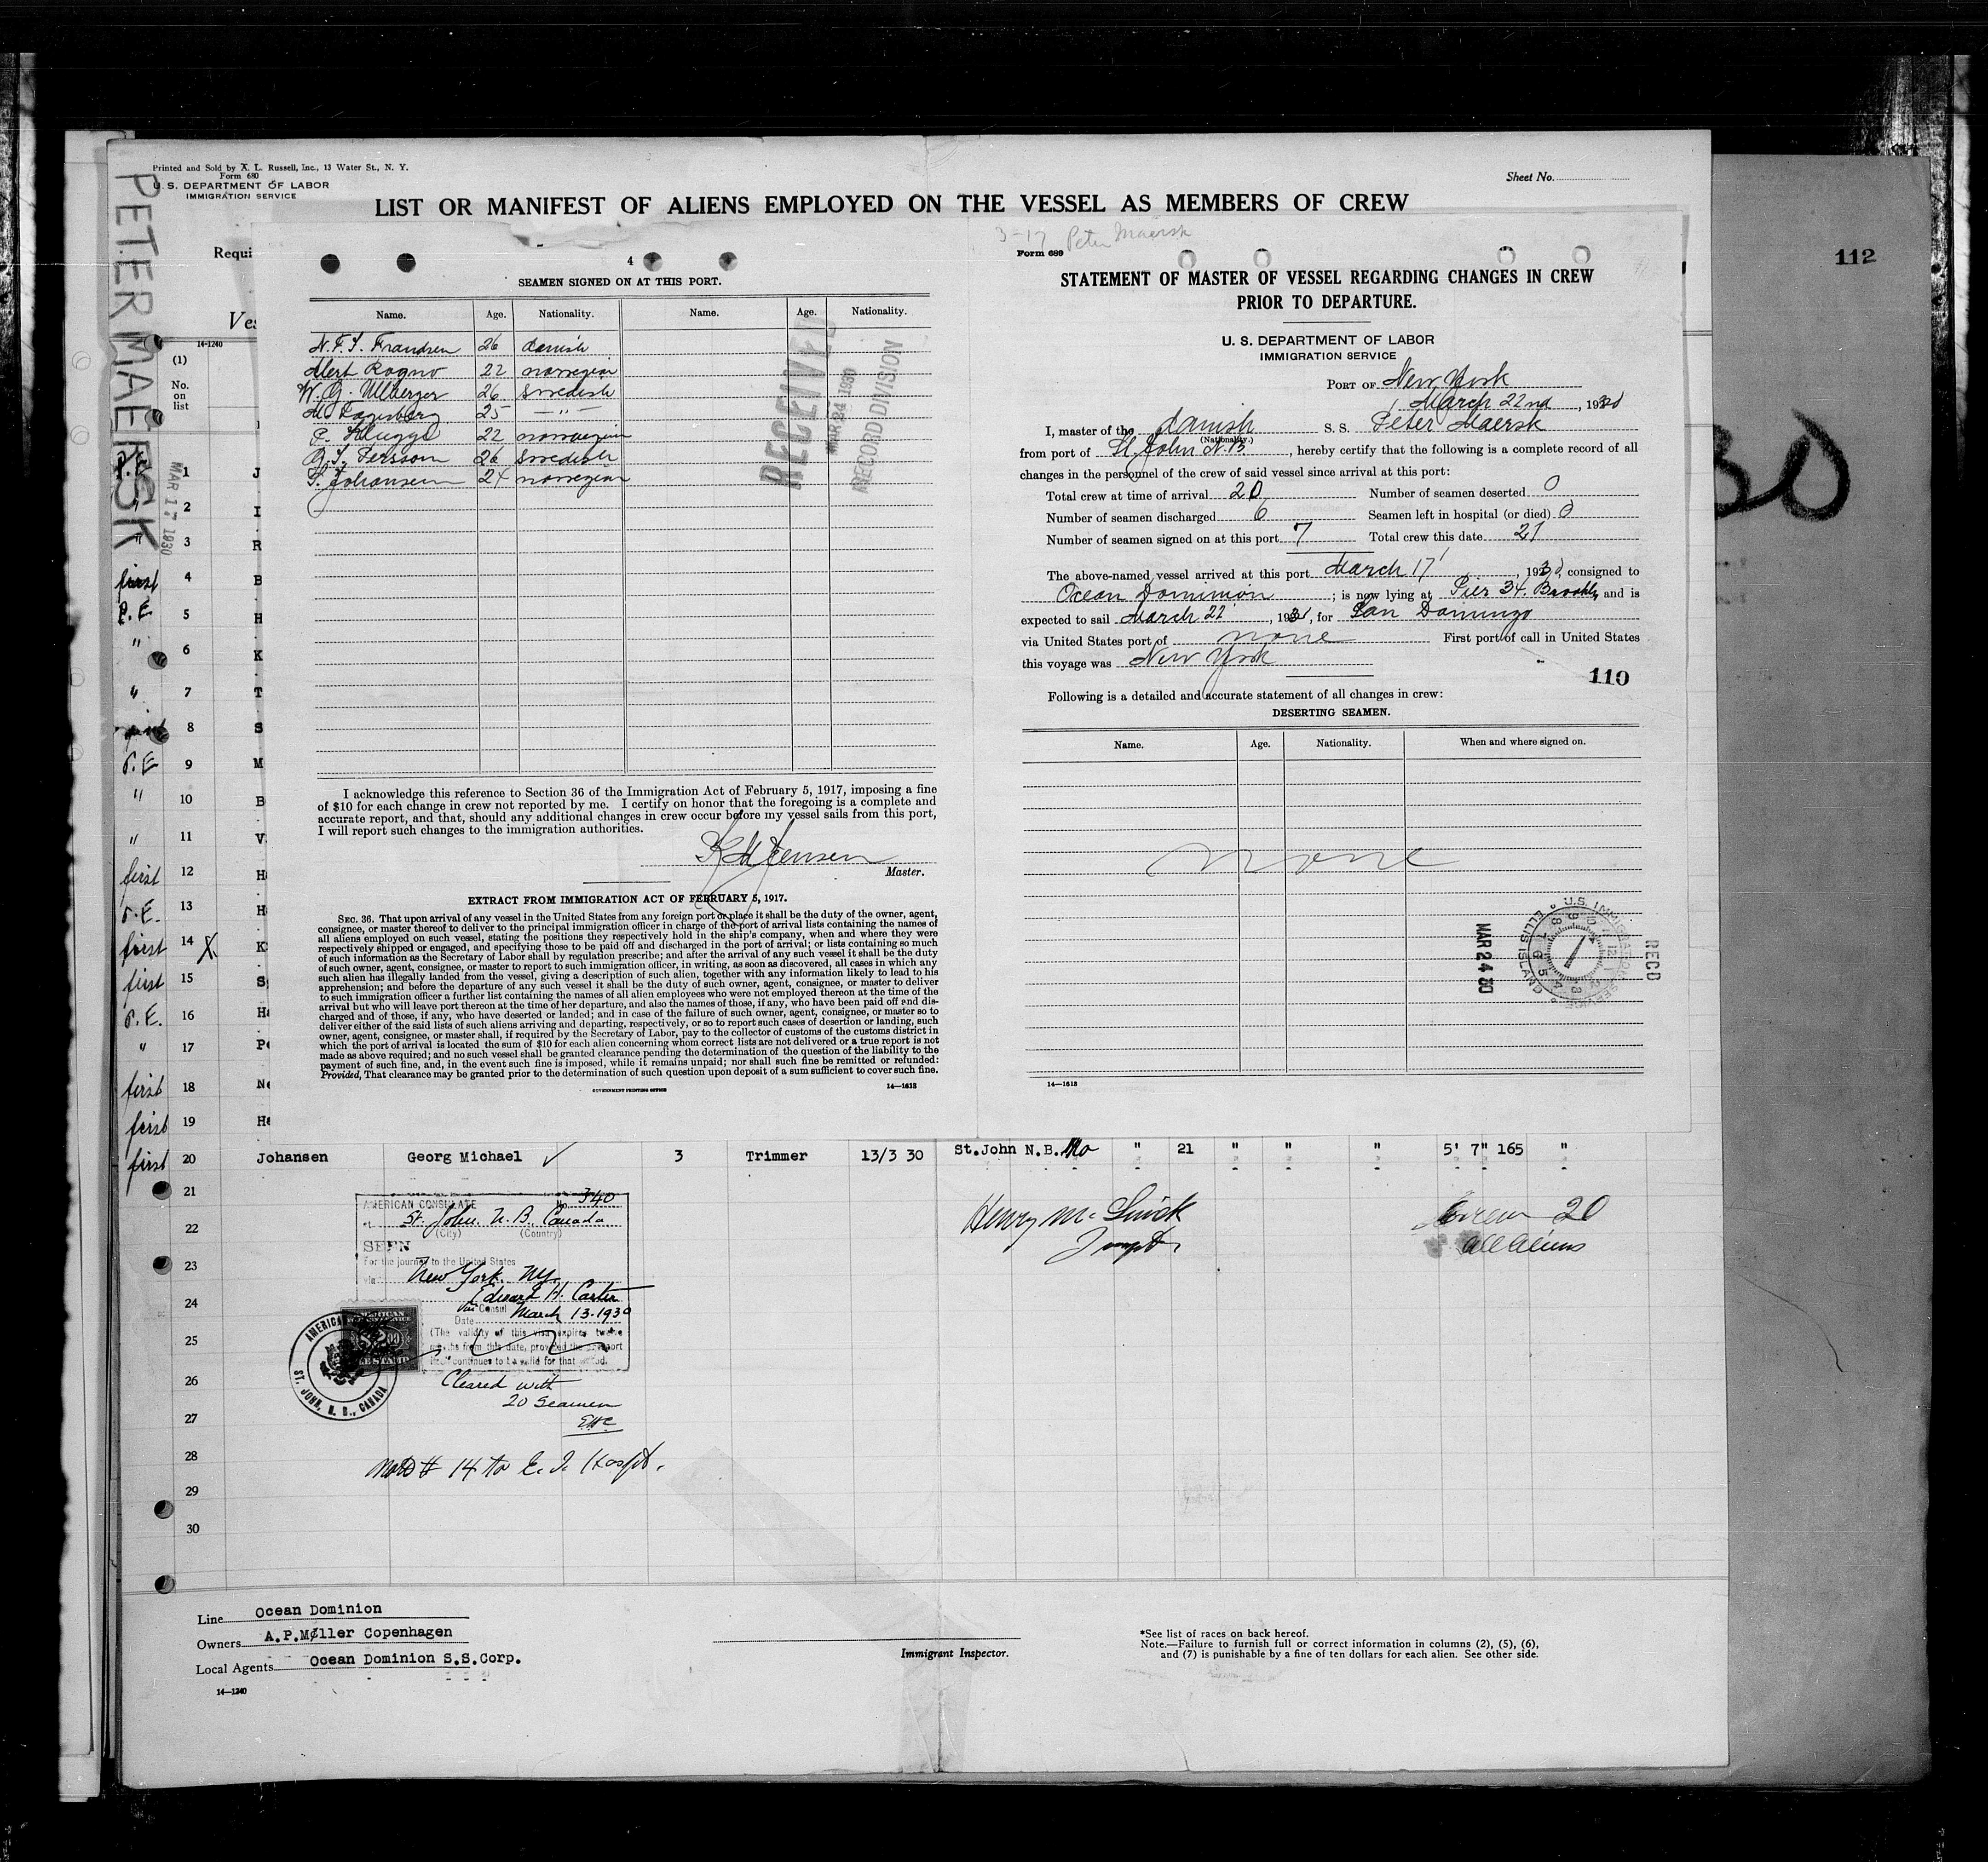 Printed and Sold by A. L. Russell, Inc., 13 Water St., N. Y.
Form 680
U. S. DEPARTMENT OF LABOR
IMMIGRATION SERVICE
Sheet No.
LIST OR MANIFEST OF ALIENS EMPLOYED ON THE VESSEL AS MEMBERS OF CREW
PETER MAERSK
MAR 17 1930
Requi
Ves
14-1240
(1)
No. on list
112
30
4
SEAMEN SIGNED ON AT THIS PORT.
Name. Age. Nationality. Name. Age. Nationality.
N.F.S. Frandsen 26 danish
Alert Rogno 22 norwegian
W.G. Ullberger 26 swedish
25 — " —
22 norwegian
G.S. Persson 26 swedish
Johansen 24 norwegian
RECEIVED
MAR 24 1930
RECORD DIVISION
I acknowledge this reference to Section 36 of the Immigration Act of February 5, 1917, imposing a fine
of $10 for each change in crew not reported by me. I certify on honor that the foregoing is a complete and
accurate report, and that, should any additional changes in crew occur before my vessel sails from this port,
I will report such changes to the immigration authorities.
Jensen
Master.
EXTRACT FROM IMMIGRATION ACT OF FEBRUARY 5, 1917.
SEC. 36. That upon arrival of any vessel in the United States from any foreign port or place it shall be the duty of the owner, agent,
consignee, or master thereof to deliver to the principal immigration officer in charge of the port of arrival lists containing the names of
all aliens employed on such vessel, stating the positions they respectively hold in the ship's company, when and where they were
respectively shipped or engaged, and specifying those to be paid off and discharged in the port of arrival; or lists containing so much
of such information as the Secretary of Labor shall by regulation prescribe; and after the arrival of any such vessel it shall be the duty
of such owner, agent, consignee, or master to report to such immigration officer, in writing, as soon as discovered, all cases in which any
such alien has illegally landed from the vessel, giving a description of such alien, together with any information likely to lead to his
apprehension; and before the departure of any such vessel it shall be the duty of such owner, agent, consignee, or master to deliver
to such immigration officer a further list containing the names of all alien employees who were not employed thereon at the time of the
arrival but who will leave port thereon at the time of her departure, and also the names of those, if any, who have been paid off and dis-
charged and of those, if any, who have deserted or landed; and in case of the failure of such owner, agent, consignee, or master so to
deliver either of the said lists of such aliens arriving and departing, respectively, or so to report such cases of desertion or landing, such
owner, agent, consignee, or master shall, if required by the Secretary of Labor, pay to the collector of customs of the customs district in
which the port of arrival is located the sum of $10 for each alien concerning whom correct lists are not delivered or a true report is not
made as above required; and no such vessel shall be granted clearance pending the determination of the question of the liability to the
payment of such fine, and, in the event such fine is imposed, while it remains unpaid; nor shall such fine be remitted or refunded:
Provided, That clearance may be granted prior to the determination of such question upon deposit of a sum sufficient to cover such fine.
GOVERNMENT PRINTING OFFICE
14—1613
3-17 Peter Maersk
Form 689
STATEMENT OF MASTER OF VESSEL REGARDING CHANGES IN CREW
PRIOR TO DEPARTURE.
U. S. DEPARTMENT OF LABOR
IMMIGRATION SERVICE
PORT OF New York
March 22nd, 1930
I, master of the danish S. S. Peter Maersk
(Nationality.)
from port of St. John N.B, hereby certify that the following is a complete record of all
changes in the personnel of the crew of said vessel since arrival at this port:
Total crew at time of arrival 20 Number of seamen deserted 0
Number of seamen discharged 6 Seamen left in hospital (or died) 0
Number of seamen signed on at this port 7 Total crew this date 21
The above-named vessel arrived at this port March 17, 1930, consigned to
Ocean Dominion; is now lying at Pier 34 Brooklyn and is
expected to sail March 22, 1930, for San Domingo
via United States port of none First port of call in United States
this voyage was New York
110
Following is a detailed and accurate statement of all changes in crew:
DESERTING SEAMEN.
Name. Age. Nationality. When and where signed on.
none
MAR 24 30
U.S. IMMIGRATION SERVICE ELLIS ISLAND
RECD
14—1613
P.E 1 J
" 2 I
" 3 R
first 4 B
P.E 5 H
" 6 K
" 7 T
first 8 S
P.E 9 M
" 10 B
" 11 V
first 12 H
P.E. 13 H
first 14 X K
first 15 S
P.E. 16 H
" 17 P
first 18 Ne
first 19 He
first 20 Johansen Georg Michael ✓ 3 Trimmer 13/3 30 St.John N.B. No " 21 " " " 5' 7" 165 "
21
22
23
24
25
26
27
28
29
30
AMERICAN CONSULATE No. 340
at St. John. N. B., Canada
(City) (Country)
SEEN
For the journey to the United States
via New York. NY
Edward H. Carter
Vice Consul
Date March 13. 1930
(The validity of this visa expires twelve
months from this date, provided the passport
continues to be valid for that period.
AMERICAN
ST. JOHN, N. B., CANADA
Cleared with
20 seamen
EHC
Henry Mc
Crew 20
All Aliens
Note # 14 to E. I. Hospt.
Line Ocean Dominion
Owners A.P.Møller Copenhagen
Local Agents Ocean Dominion S.S.Corp.
14—1240
Immigrant Inspector.
*See list of races on back hereof.
Note.—Failure to furnish full or correct information in columns (2), (5), (6),
and (7) is punishable by a fine of ten dollars for each alien. See other side.